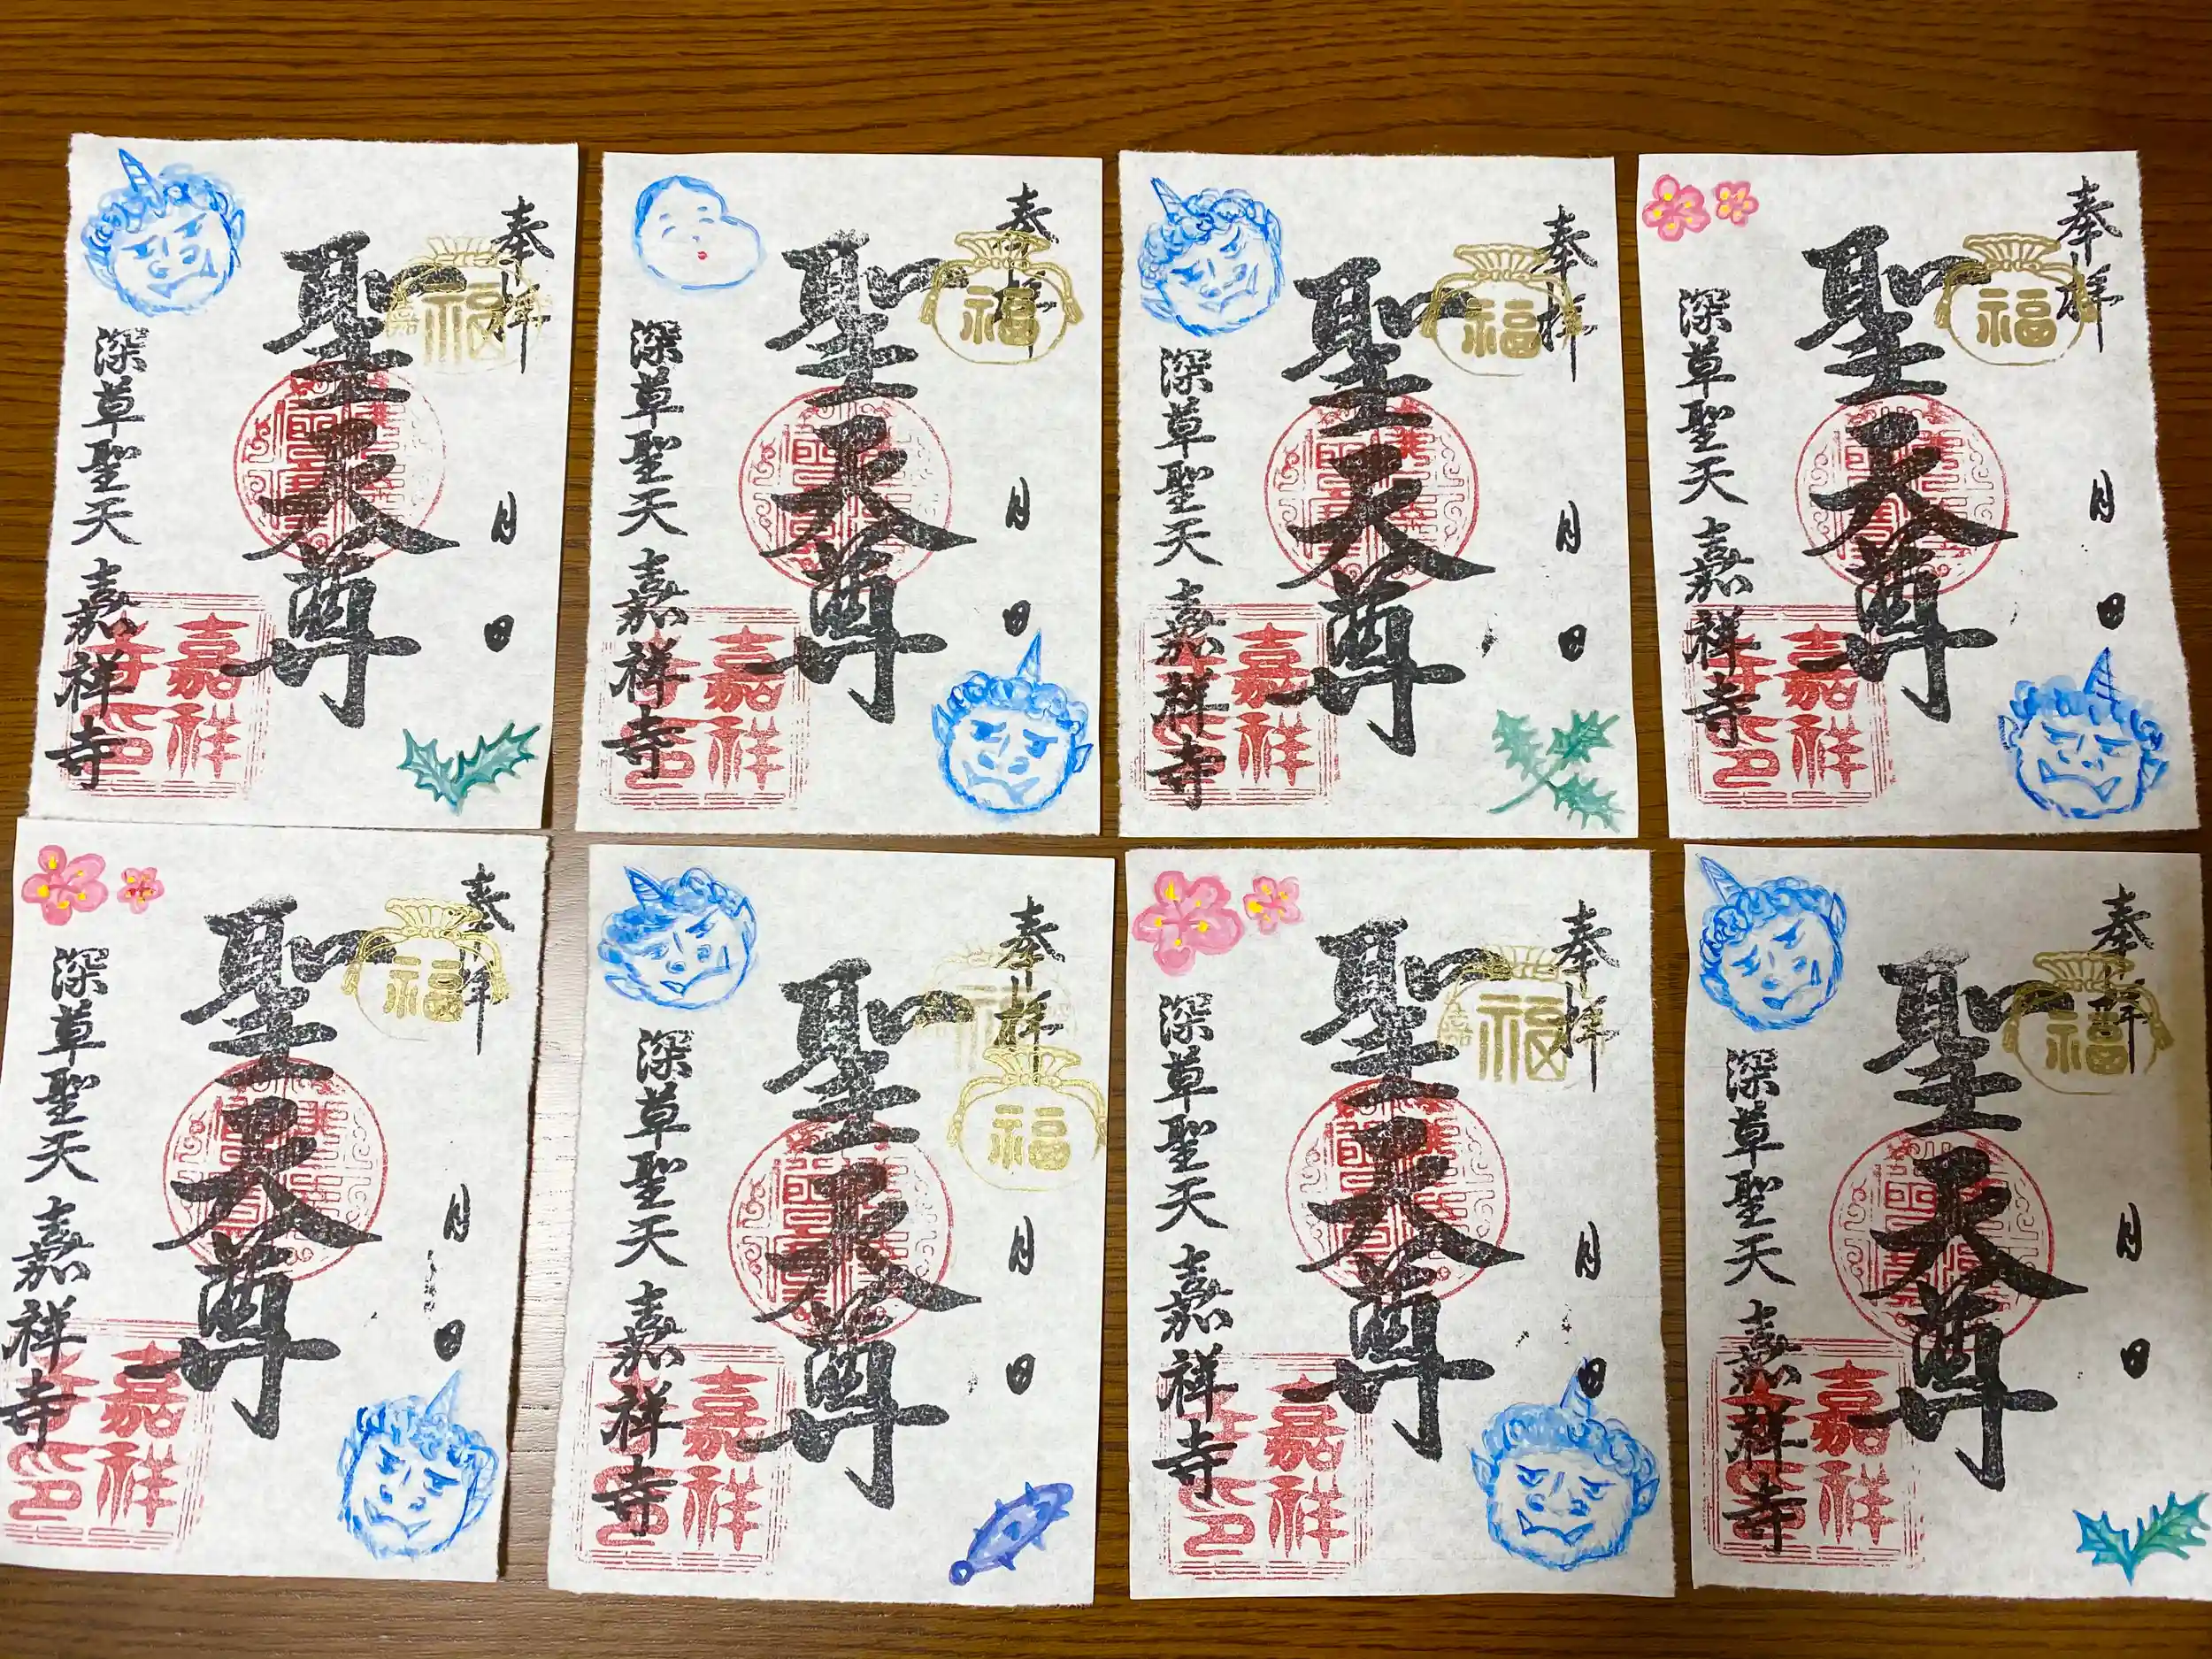 奉拝
福
聖天尊
月
日
深草聖天 嘉祥寺
嘉祥寺印
奉拝
福
聖天尊
月
日
深草聖天 嘉祥寺
嘉祥寺印
奉拝
福
聖天尊
月
日
深草聖天 嘉祥寺
嘉祥寺印
奉拝
福
聖天尊
月
日
深草聖天 嘉祥寺
嘉祥寺印
奉拝
福
聖天尊
月
日
深草聖天 嘉祥寺
嘉祥寺印
奉拝
福
聖天尊
月
日
深草聖天 嘉祥寺
嘉祥寺印
奉拝
福
聖天尊
月
日
深草聖天 嘉祥寺
嘉祥寺印
奉拝
福
聖天尊
月
日
深草聖天 嘉祥寺
嘉祥寺印